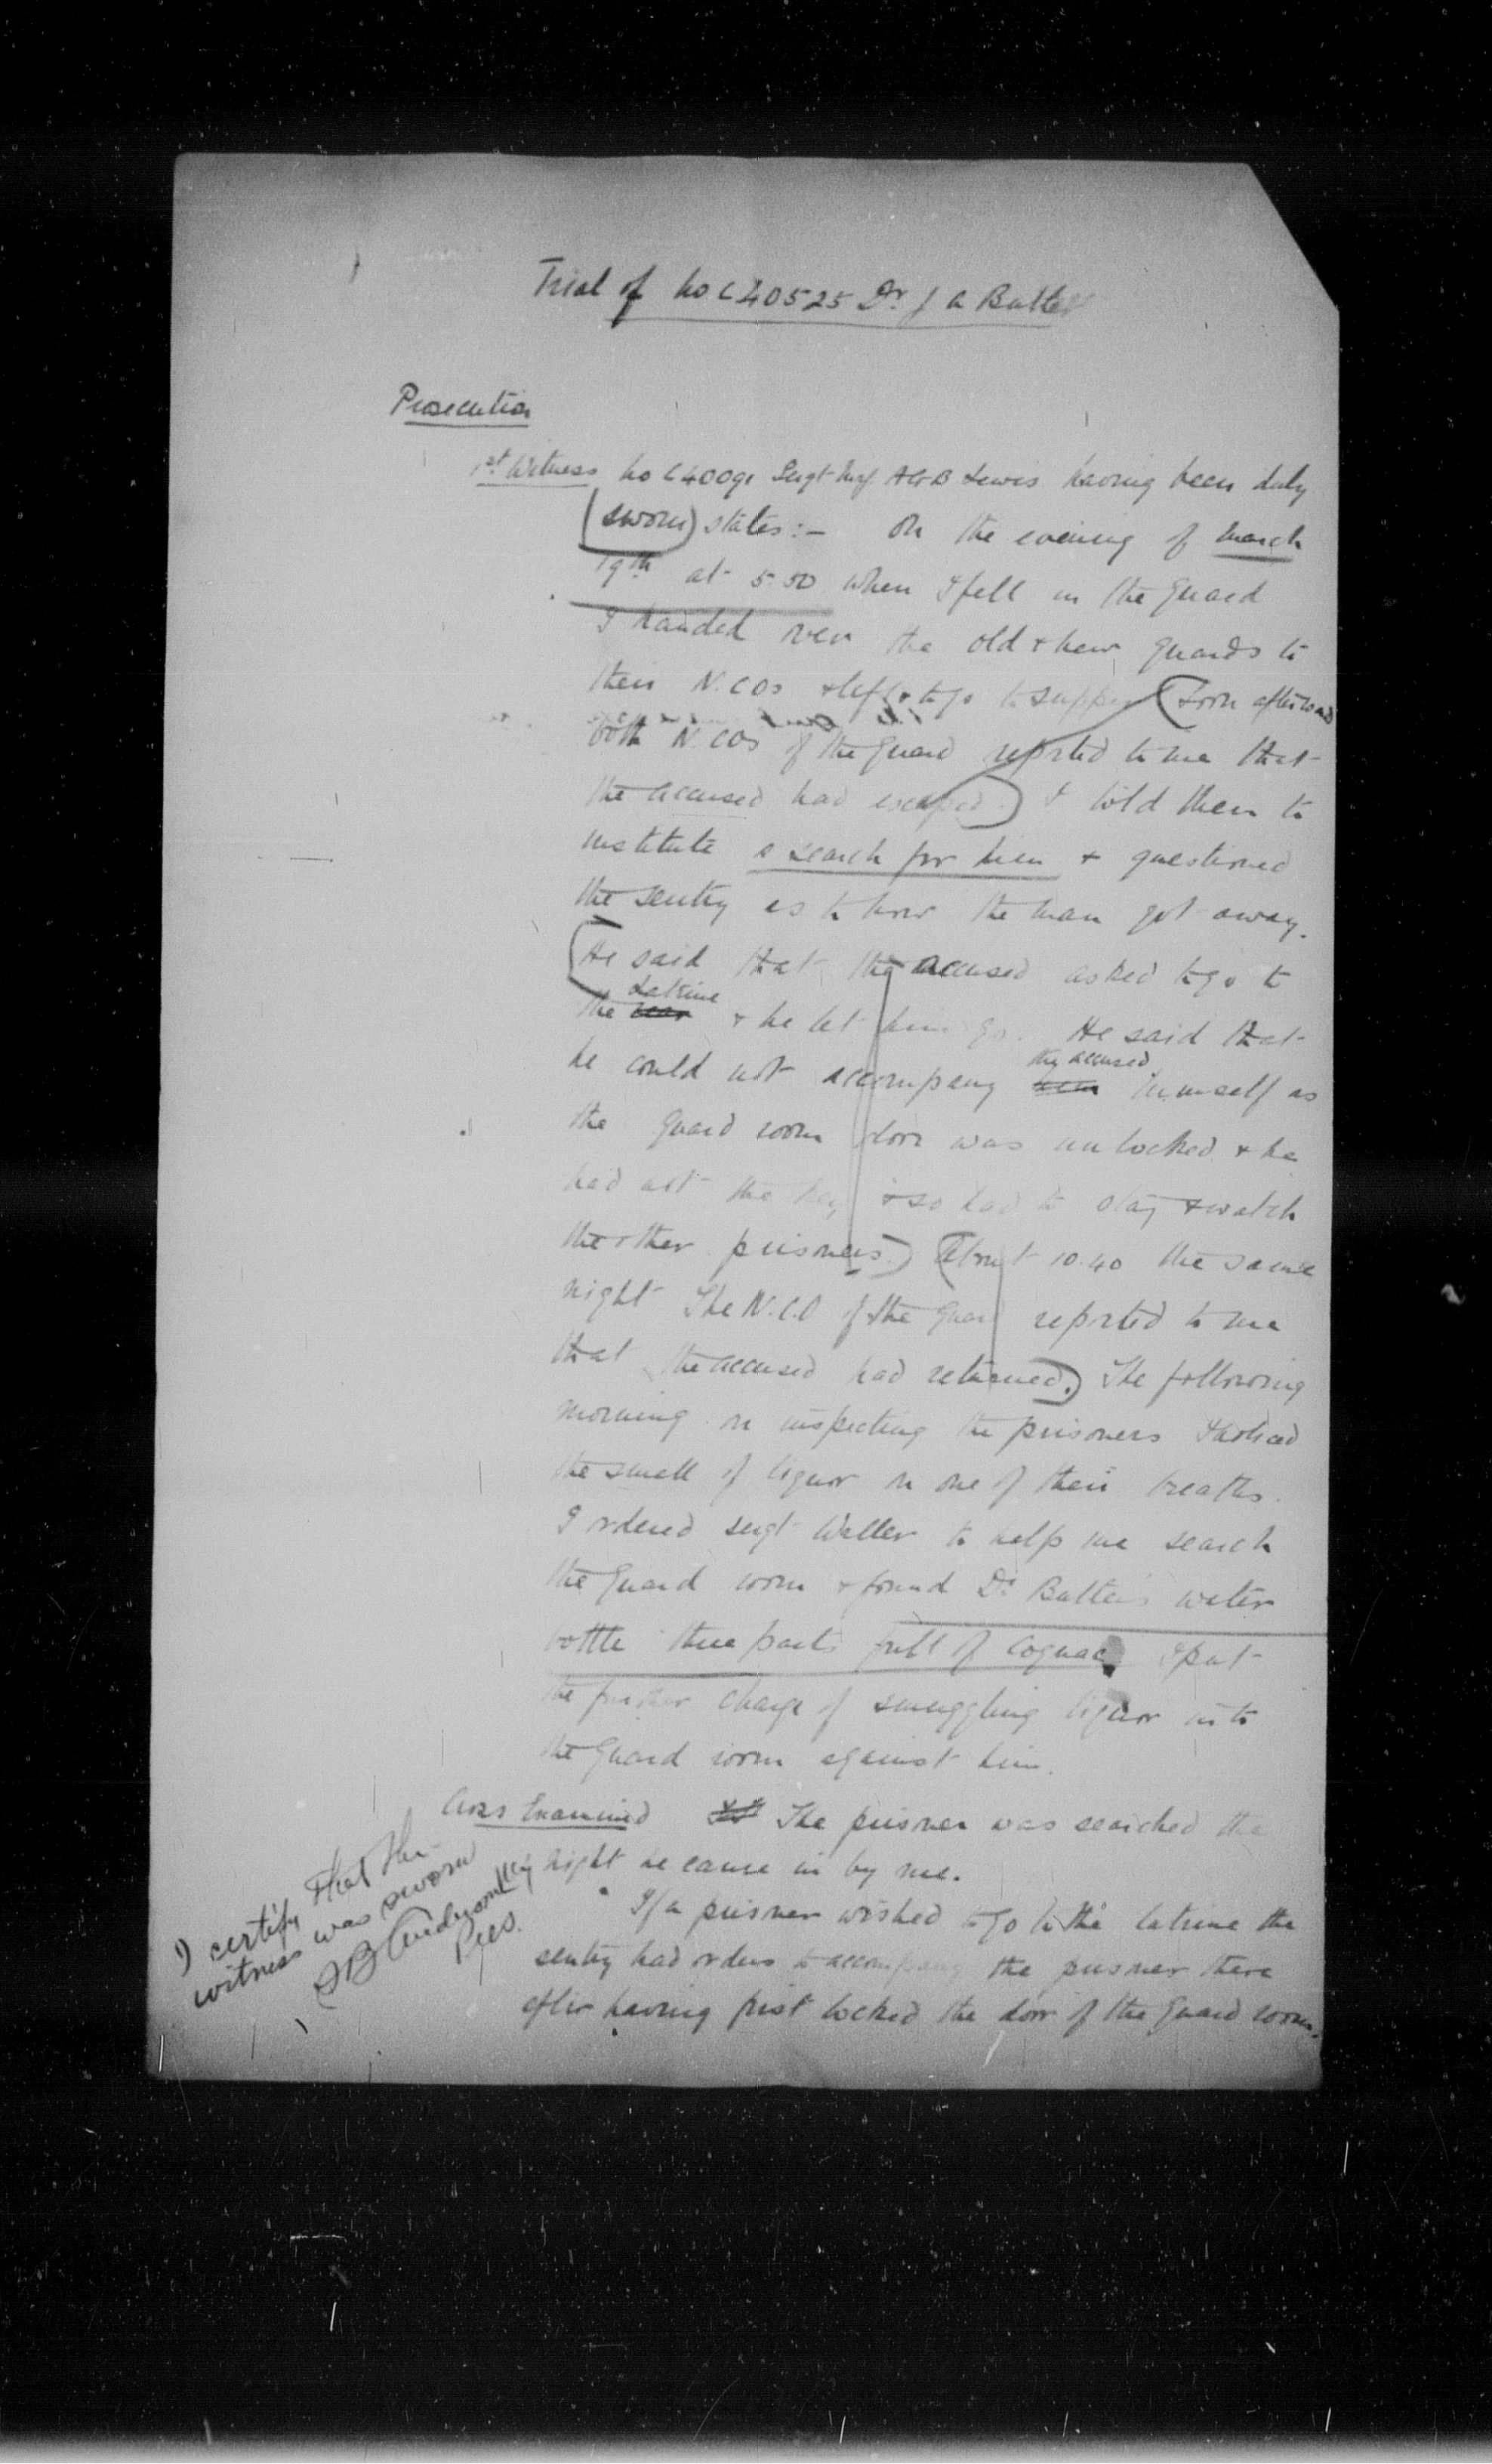 Trial of No C40525 Dr J A Batter
Prosecution
1st Witness No C40091 Sergt Maj A G B Lewis having been duly
(sworn) states:- On the evening of March
19th at 5.50 when I fell in the Guard
I handed over the old & new guards to
their N.COs & left to go to supper (Soon afterward
both N.COs of the Guard reported to me that
the accused had escaped.) I told them to
institute a search for him & questioned
the sentry as to how the man got away.
(He said that the accused asked to go to
the rear Latrine & he let him go. He said that
he could not accompany him the accused himself as
the guard room door was unlocked & he
had not the key & so had to stay & watch
the other prisoners.) (About 10.40 the same
night The N.C.O of the Guard reported to me
that the accused had returned.) The following
morning on inspecting the prisoners I noticed
the smell of liquor on one of their breaths.
I ordered sergt Waller to help me search
the Guard room & found Dr Batter's water
bottle three parts full of Cognac. I put
the further charge of smuggling liquor into
the Guard room against him.
Cross Examined The prisoner was searched the
night he came in by me.
If a prisoner wished to go to the latrine the
sentry had orders to accompany the prisoner there
after having first locked the door of the Guard room.
I certify that this
witness was sworn
Anderson Maj
Pres.